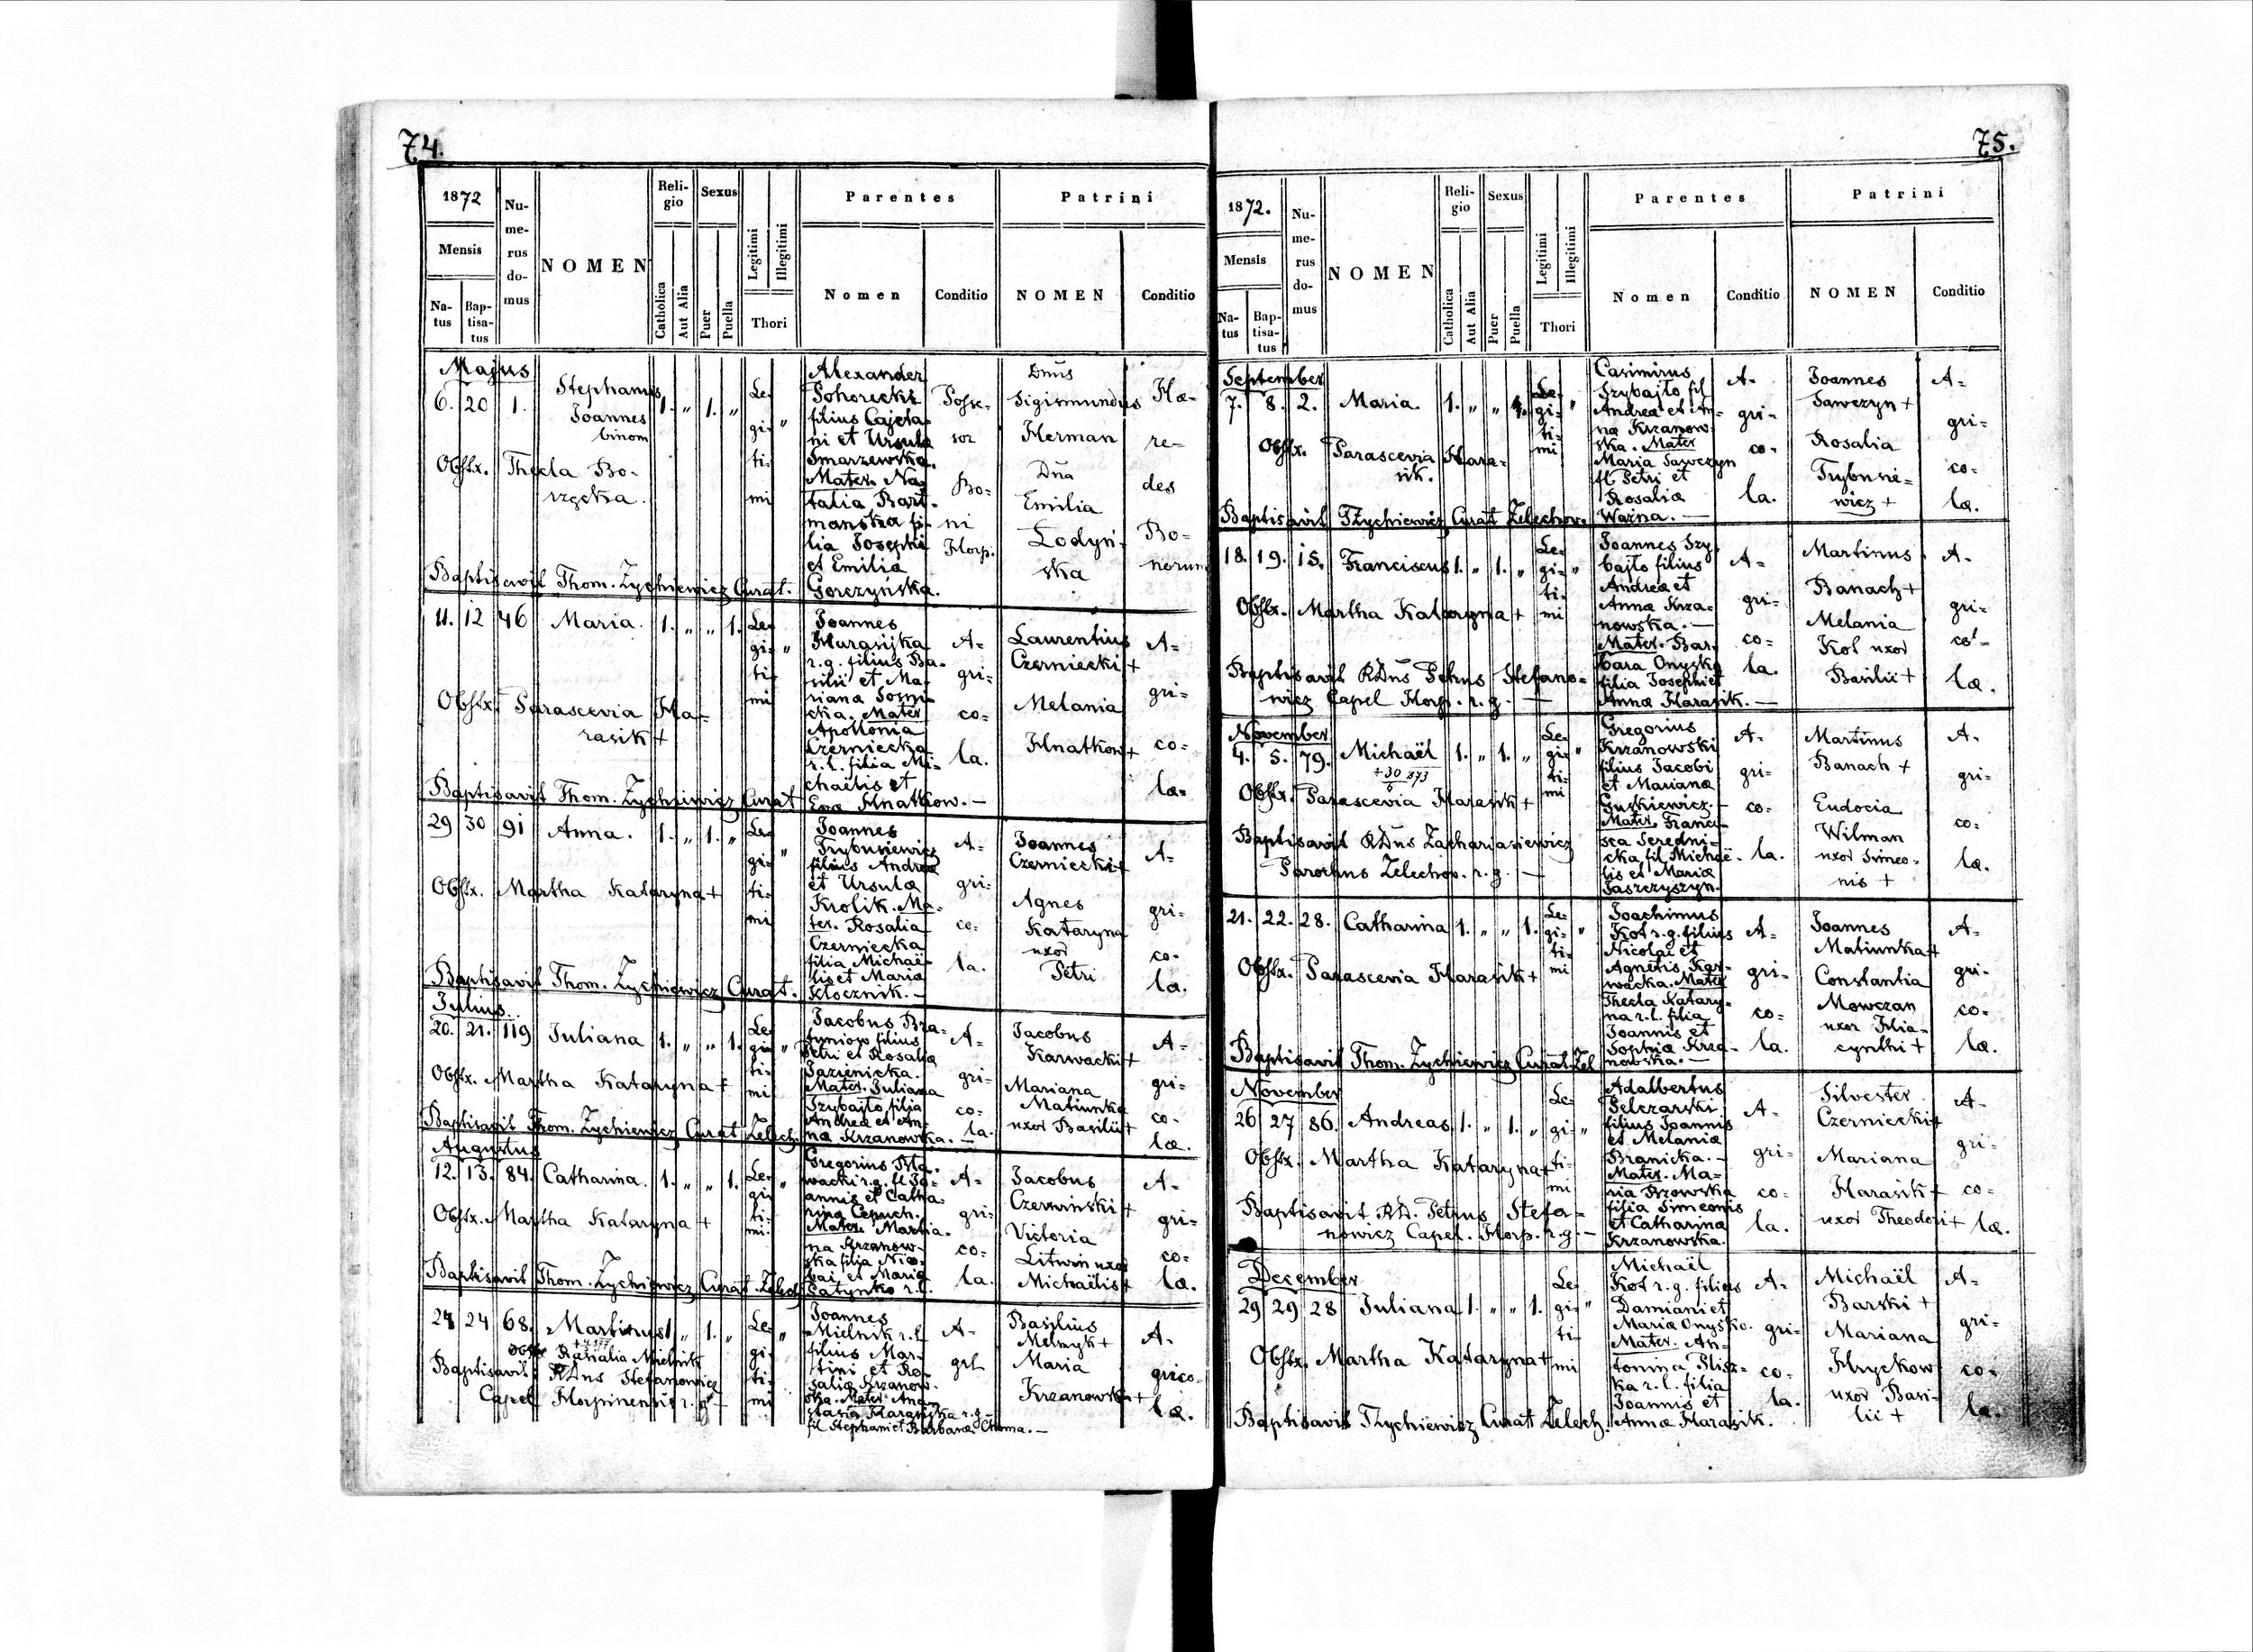 74.
1872
Mensis
Na-
tus
Bap-
tisa-
tus
Nu-
me-
rus
do-
mus
NOMEN
Reli-
gio
Catholica
Aut Alia
Sexus
Puer
Puella
Legitimi
Illegitimi
Thori
Parentes
Nomen
Conditio
Patrini
NOMEN
Conditio
Majus
6. 20 1. Stephanus
Joannes
binom
1. " 1. "
Le-
gi- "
ti-
mi
Obstx. Thecla Bo-
rzęcka.
Alexander
Pohorecki
filius Cajeta-
ni et Ursula
Smarzewska.
Mater. Na-
talia Bart-
mańska fi-
lia Josephi
et Emilia
Gorczyńska.
Posse-
sor
Bo-
ni
Horp.
Dnus
Sigismundus
Herman
Dna
Emilia
Łodyń-
ska
Hæ-
re-
des
Bo-
norum
Baptisavit Thom. Zychiewicz Curat.
11. 12 46 Maria. 1. " " 1.
Le-
gi- "
ti-
mi
Obstx. Parascevia Ha-
rasik +
Joannes
Harasijka
r.g. filius Ba-
silii et Ma-
riana Sosni-
cka. Mater
Apollonia
Czerniecka
r.l. filia Mi-
chaëlis et
Eva Hnatkow. -
A-
gri-
co-
la.
Laurentius
Czerniecki +
Melania
Hnatkow +
A-
gri-
co-
læ.
Baptisavit Thom. Zychiewicz Curat
29 30 91 Anna. 1. " 1. "
Le-
gi- "
ti-
mi
Obstx. Martha Kataryna +
Joannes
Trybuniewicz
filius Andreæ
et Ursulæ
Krolik. Ma-
ter. Rosalia
Czerniecka
filia Michaë-
lis et Maria
Klocznik. -
A-
gri-
co-
la.
Joannes
Czerniecki +
Agnes
Kataryna
uxor
Petri
A-
gri-
co-
la.
Baptisavit Thom. Zychiewicz Curat.
Julius.
20. 21. 119 Juliana 1. " " 1.
Le-
gi- "
ti-
mi
Obstx. Martha Kataryna +
Jacobus Bra-
filius
Petri et Rosalia
Jazienicka.
Mater. Juliana
Szybajło filia
Andreæ et An-
na Krzanowska. -
A-
gri-
co-
la.
Jacobus
Karwacki +
Mariana
Matiunka
uxor Basilii +
A-
gri-
co-
læ.
Baptisavit Thom. Zychiewicz Curat Zelech.
Augustus
12. 13. 84. Catharina. 1. " " 1.
Le-
gi- "
ti-
mi.
Obstx. Martha Kataryna +
Gregorius
r.g. fl Jo-
annis et Catha-
rina
Mater. Maria-
na Krzanow-
ska filia Nico-
lai et Maria
r.l.
A-
gri-
co-
la.
Jacobus
Czerwinski +
Victoria
Litwin uxor
Michaëlis +
A-
gri-
co-
læ.
Baptisavit Thom. Zychiewicz Curat. Zelech.
24 24 68. Martinus 1 " 1. "
Le- "
gi-
ti-
mi
Obstx Mielnik
Baptisavit RDnus Stefanowicz
Capel Horpinensis r.g. -
Joannes
Mielnik r.l.
filius Mar-
tini et Ro-
salia Krzanow-
ska. Mater. Ana-
stasia Harasijka r.g.
fil Stephani et Barbaræ Choma. -
A-
gri-
Basilius
Melnyk +
Maria
Krzanowska +
A-
grico-
læ.
75.
1872.
Mensis
Na-
tus
Bap-
tisa-
tus
Nu-
me-
rus
do-
mus
NOMEN
Reli-
gio
Catholica
Aut Alia
Sexus
Puer
Puella
Legitimi
Illegitimi
Thori
Parentes
Nomen
Conditio
Patrini
NOMEN
Conditio
September
7. 8. 2. Maria. 1. " " 1.
Le-
gi- "
ti-
mi
Obstx. Parascevia Hara-
sik.
Casimirus
Szybajło fil
Andreæ et An-
na Krzanow-
ska. Mater
Maria Sawczyn
fl Petri et
Rosaliæ
Warna. -
A-
gri-
co-
la.
Joannes
Sawczyn +
Rosalia
Trybunie-
wicz +
A-
gri-
co-
læ.
Baptisavit TZychiewicz Curat Zelechov.
18. 19. 15. Franciscus 1. " 1. "
Le-
gi- "
ti-
mi
Obstx. Martha Kataryna +
Joannes Szy-
bajło filius
Andreæ et
Anna Krza-
nowska. -
Mater. Bar-
bara Onyska
filia Josephi et
Anna Harasik. -
A-
gri-
co-
la.
Martinus
Banach +
Melania
Kot uxor
Basilii +
A-
gri-
co-
læ.
Baptisavit RDnus Petrus Stefano-
wicz Capel Horp. r.g. -
November
4. 5. 79. Michaël 1. " 1. "
Le-
gi- "
ti-
mi
Obstx. Parascevia Harasik +
Gregorius
Krzanowski
filius Jacobi
et Mariana
Guskiewicz. -
Mater. Franci-
sca Seredni-
cka fil. Michaë-
lis et Mariæ
Jaszczyszyn.
A-
gri-
co-
la.
Martinus
Banach +
Eudocia
Wilman
uxor Simeo-
nis +
A-
gri-
co-
læ.
Baptisavit RDnus Zachariasiewicz
Parochus Zelechov. r.g. -
21. 22. 28. Catharina 1. " " 1.
Le-
gi- "
ti-
mi
Obstx. Parascevia Harasik +
Joachimus
Kot r.g. filius
Nicolai et
Agnetis Kar-
wacka. Mater
Thecla Katary-
na r.l. filia
Joannis et
Sophiæ Krza-
nowska. -
A-
gri-
co-
la.
Joannes
Matiunka +
Constantia
Mowczan
uxor Hia-
cynthi +
A-
gri-
co-
læ.
Baptisavit Thom. Zychiewicz Curat. Zel
November
26 27 86. Andreas 1. " 1. "
Le-
gi- "
ti-
mi
Obstx. Martha Kataryna +
Adalbertus
Pelczarski
filius Joannis
et Melaniæ
Branicka. -
Mater. Ma-
ria
filia Simeonis
et Catharina
Krzanowska.
A-
gri-
co-
la.
Silvester
Czerniecki +
Mariana
Harasik +
uxor Theodori +
A-
gri-
co-
læ.
Baptisavit RD. Petrus Stefa-
nowicz Capel. Horp. r.g. -
December
29 29 28 Juliana 1. " " 1.
Le-
gi- "
ti-
mi
Obstx. Martha Kataryna +
Michaël
Kot r.g. filius
Damiani et
Mariæ Onysko.
Mater. An-
tonina
r.l. filia
Joannis et
Annæ Harasik.
A-
gri-
co-
la.
Michaël
Barski +
Mariana
Hryckow
uxor Basi-
lii +
A-
gri-
co-
læ.
Baptisavit TZychiewicz Curat Zelech.